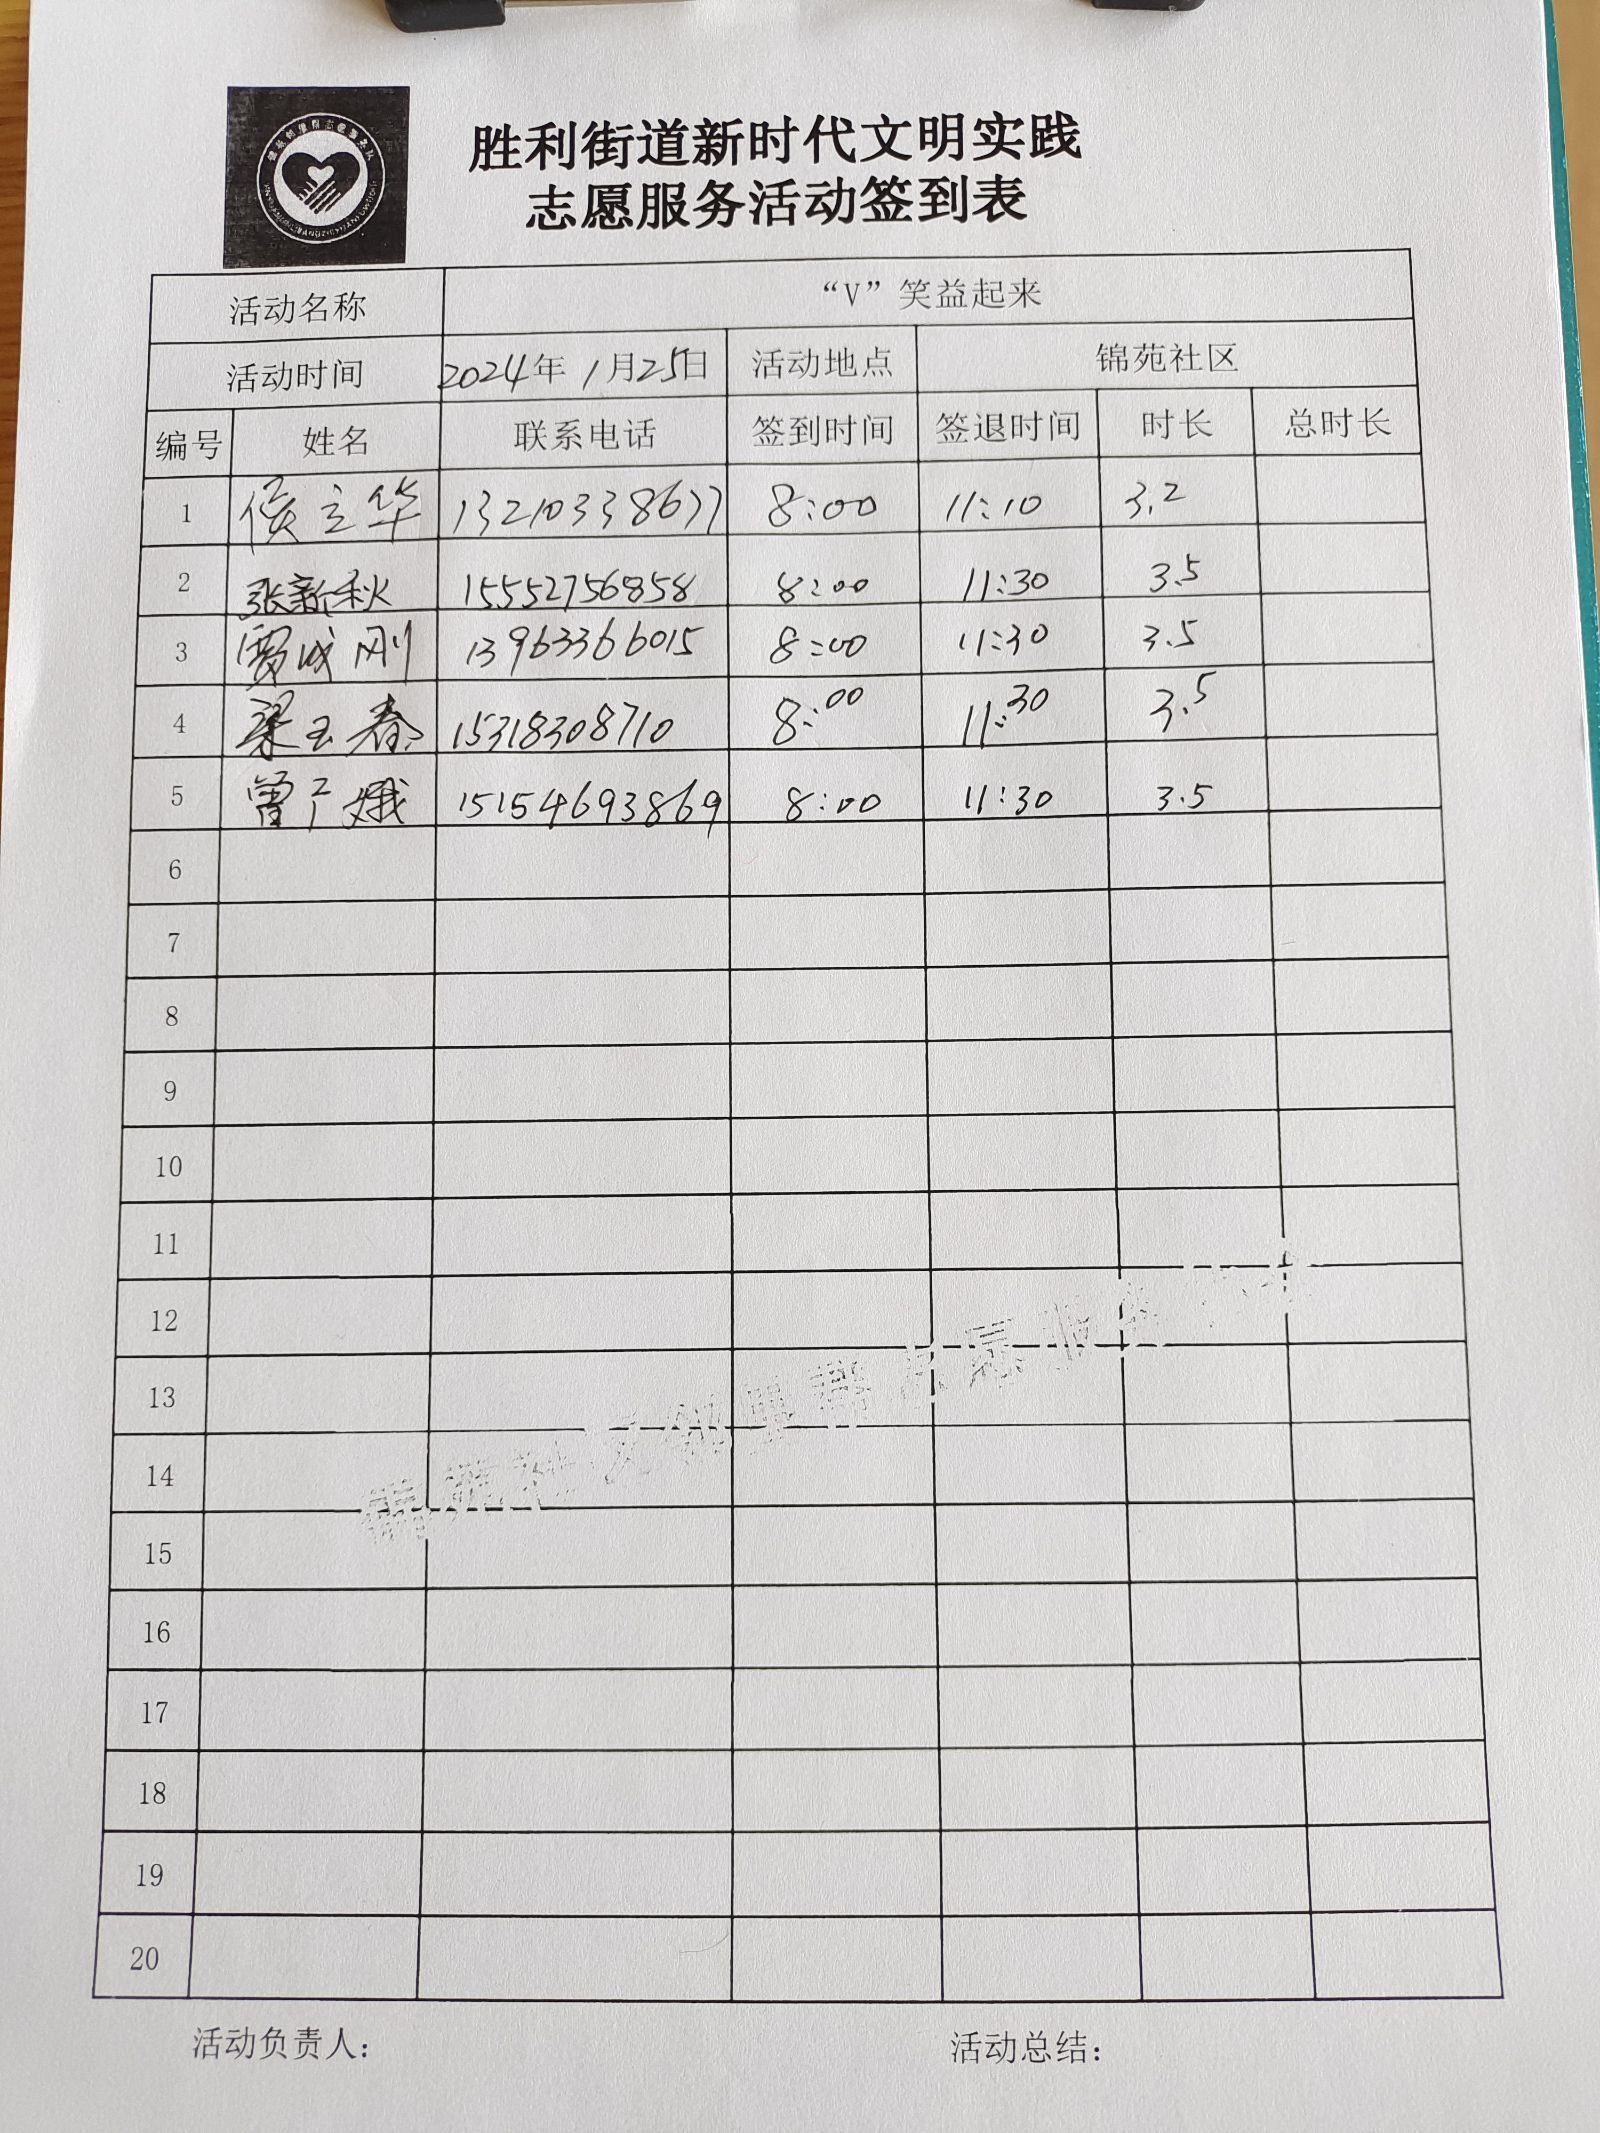 胜利街道新时代文明实践
志愿服务活动签到表
活动名称 “V”笑益起来
活动时间 2024年 1月25日 活动地点 锦苑社区
编号 姓名 联系电话 签到时间 签退时间 时长 总时长
1 侯立华 13210338677 8:00 11:10 3.2
2 张新秋 15552756858 8:00 11:30 3.5
3 贾成刚 13963366015 8:00 11:30 3.5
4 梁玉春 15318308710 8:00 11:30 3.5
5 曾广娥 15154693869 8:00 11:30 3.5
6
7
8
9
10
11
12
13
14
15
16
17
18
19
20
活动负责人： 活动总结：